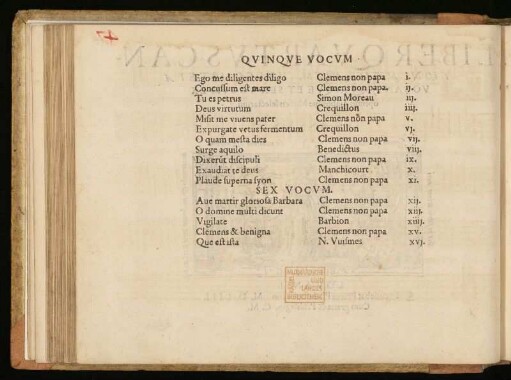 47
QVINQVE VOCVM
Ego me diligentes diligo Clemens non papa i.
Concussum est mare Clemens non papa. ij.
Tu es petrus Simon Moreau iij.
Deus virtutum Crequillon iiij.
Misit me viuens pater Clemens nõn papa v.
Expurgate vetus fermentum Crequillon vj.
O quam mesta dies Clemens non papa vij.
Surge aquilo Benedictus viij.
Dixerũt discipuli Clemens non papa ix.
Exaudiat te deus Manchicourt x.
Plaude superna syon Clemens non papa xi.
SEX VOCVM.
Aue martir gloriosa Barbara Clemens non papa xij.
O domine multi dicunt Clemens non papa xiij.
Vigilate Barbion xiiij.
Clemens & benigna Clemens non papa xv.
Que est ista N. Vuismes xvj.